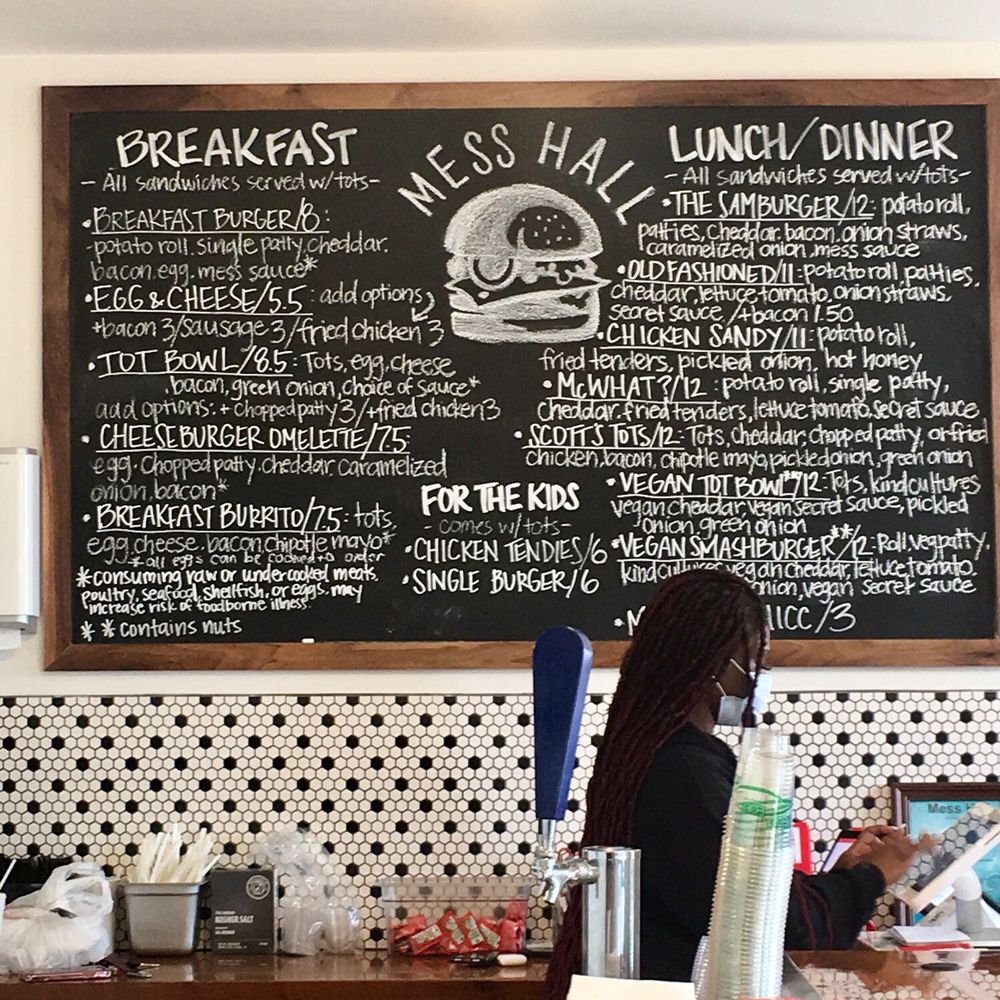 MESS HALL
BREAKFAST
- All sandwiches served w/tots -
• BREAKFAST BURGER/8:
-potato roll, single patty, cheddar,
bacon, egg, mess sauce*
• EGG & CHEESE/5.5: add options
+bacon 3/sausage 3/fried chicken 3
• TOT BOWL/8.5: Tots, egg, cheese
bacon, green onion, choice of sauce*
add options: + chopped patty 3/+fried chicken 3
• CHEESEBURGER OMELETTE/7.5:
egg, chopped patty, cheddar, caramelized
onion, bacon*
• BREAKFAST BURRITO/7.5: tots,
egg, cheese, bacon, chipotle mayo*
*all eggs can be cooked to order
*consuming raw or undercooked meats,
poultry, seafood, shellfish, or eggs, may
increase risk of foodborne illness.
** contains nuts
FOR THE KIDS
- comes w/tots -
• CHICKEN TENDIES/6
• SINGLE BURGER/6
LUNCH/DINNER
- All sandwiches served w/tots -
• THE SAMBURGER/12: potato roll,
patties, cheddar, bacon, onion straws,
caramelized onion, mess sauce
• OLD FASHIONED/11: potato roll, patties,
cheddar, lettuce, tomato, onion straws,
secret sauce /+bacon 1.50
• CHICKEN SANDY/11: potato roll,
fried tenders, pickled onion, hot honey
• McWHAT?/12: potato roll, single patty,
cheddar, fried tenders, lettuce, tomato, secret sauce
• SCOTT'S TOTS/12: Tots, cheddar, chopped patty, or fried
chicken, bacon, chipotle mayo, pickled onion, green onion
• VEGAN TOT BOWL**/12: Tots, kindcultures
vegan cheddar, vegan secret sauce, pickled
onion, green onion
• VEGAN SMASHBURGER**/12: Roll, veg patty,
kindcultures vegan cheddar, lettuce, tomato,
onion, vegan secret sauce
/3
KOSHER SALT
Mess